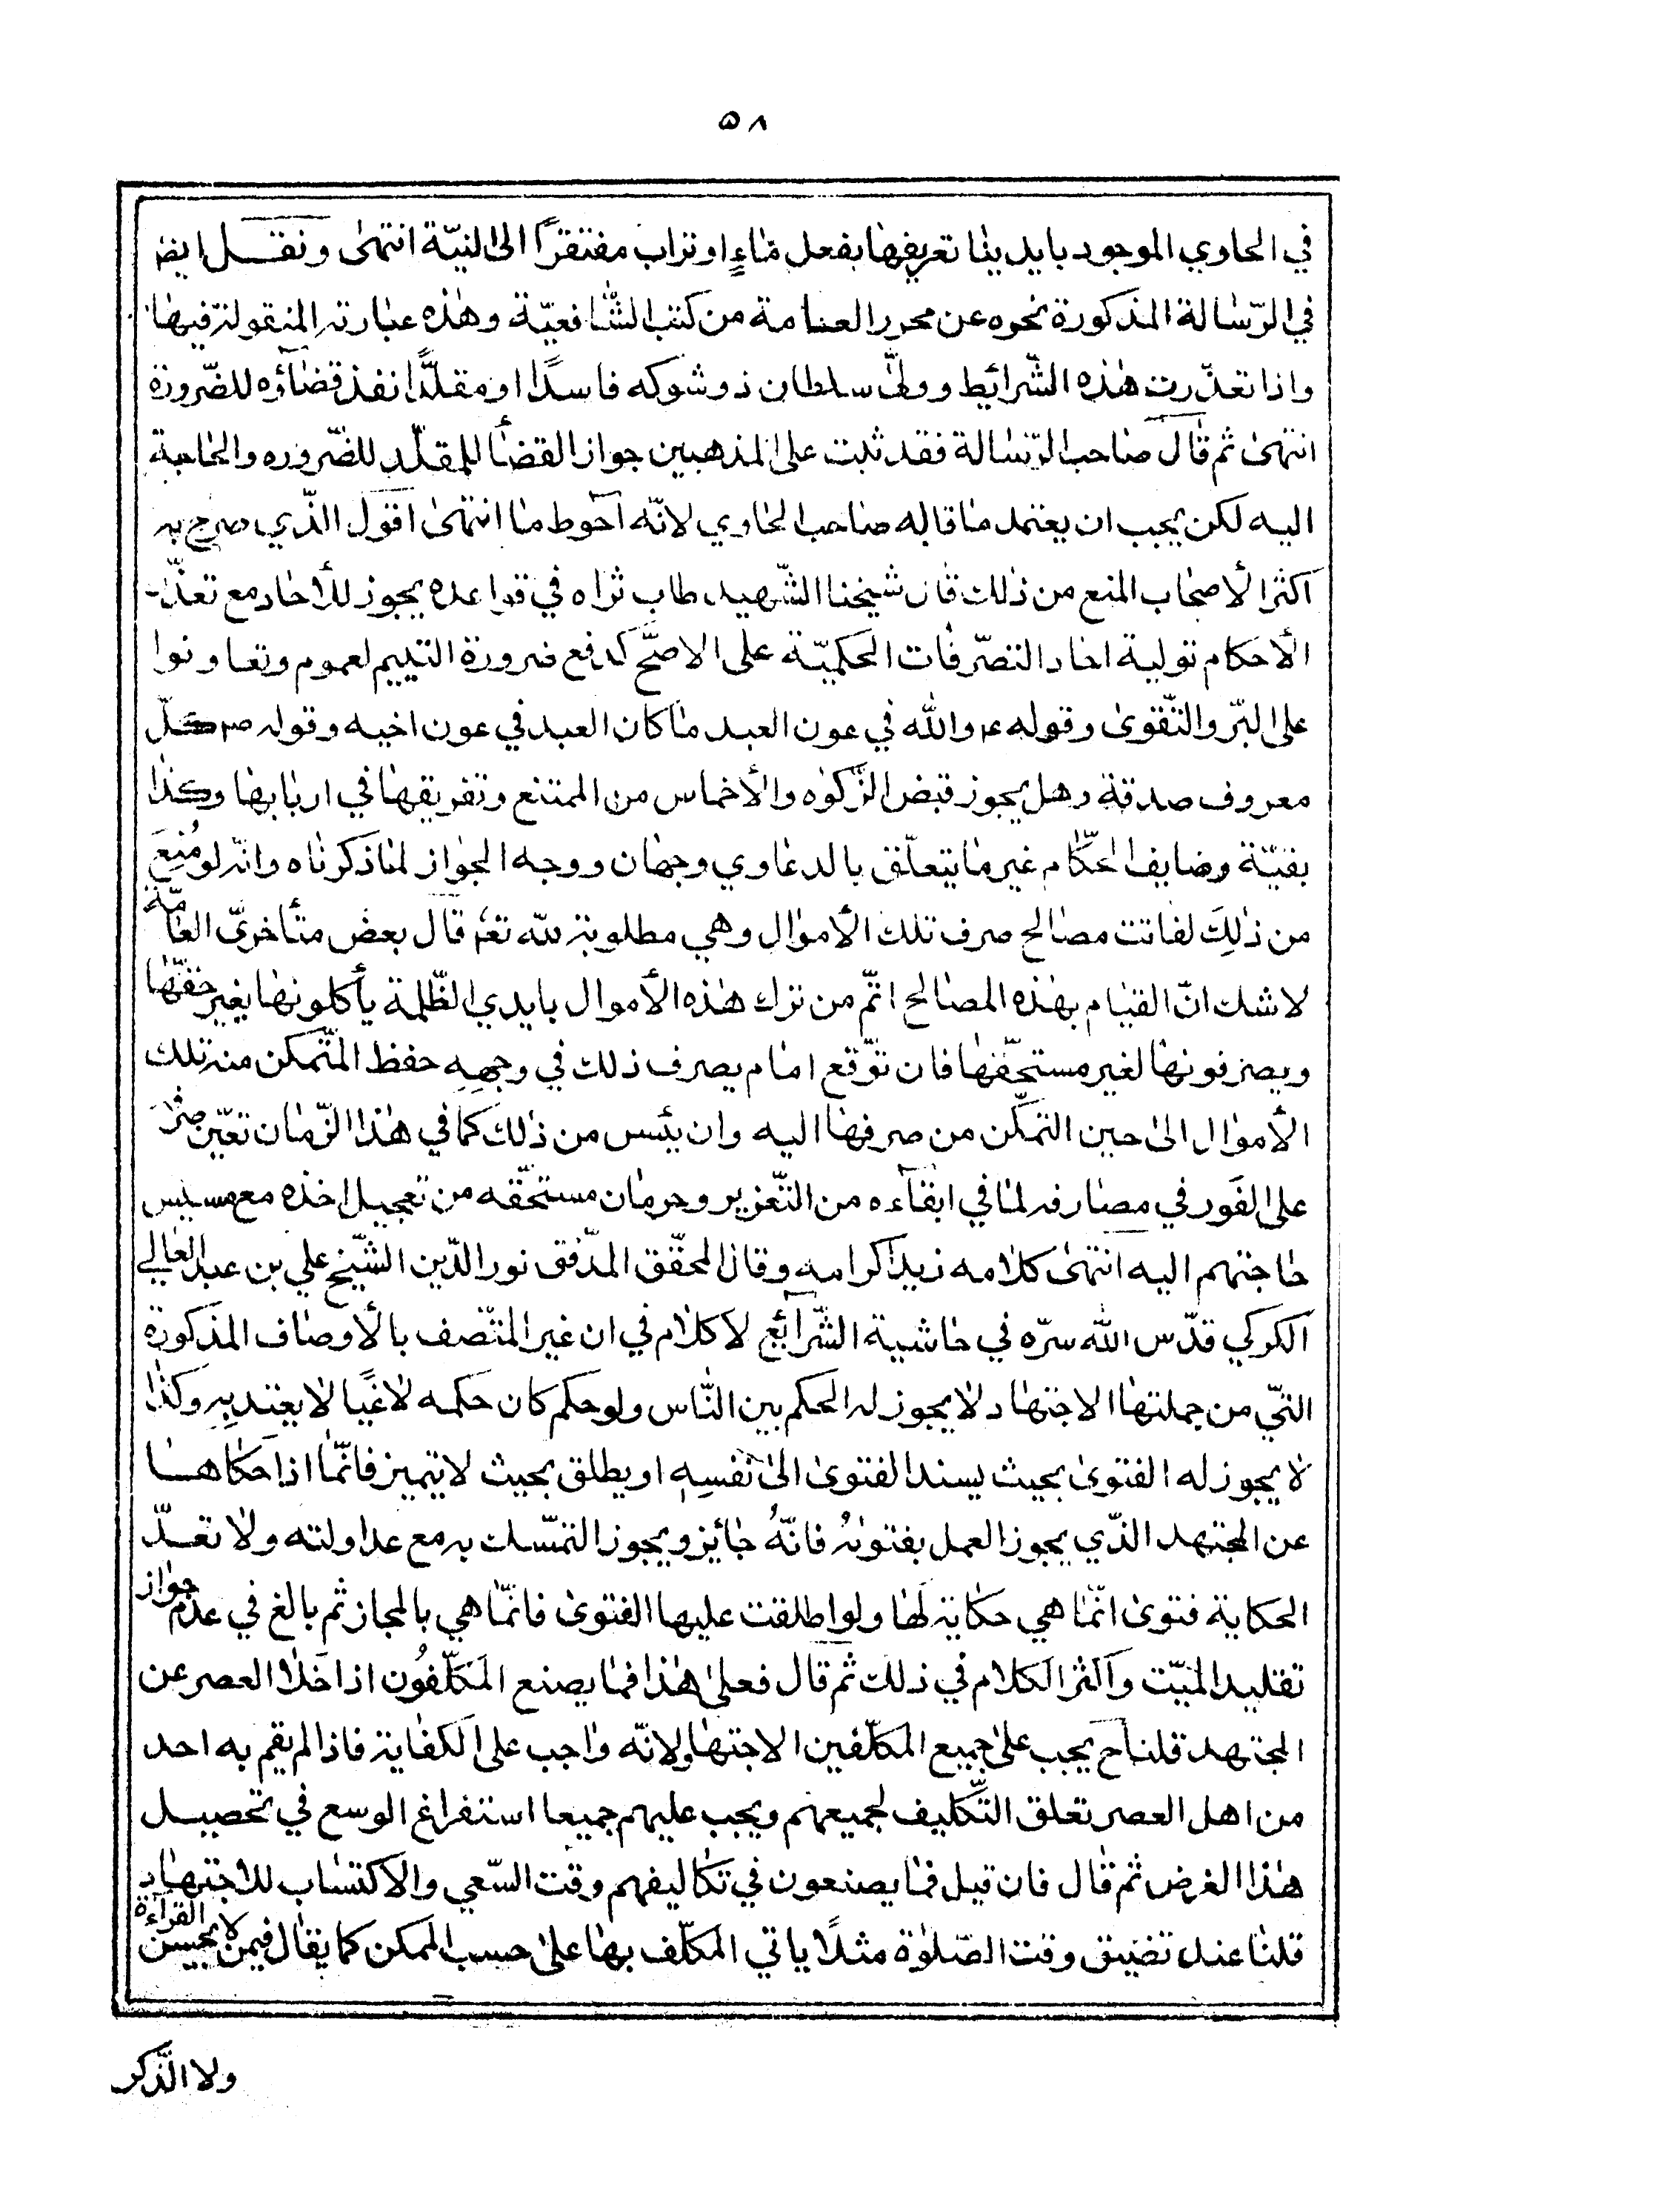 ٥٨
في الحاوي الموجود بايدينا تعريفها بفعل ماءٍ او تراب مفتقرًا الى النيّة انتهى ونقل ايض
في الرّسالة المذكورة نحوه عن محرر العلامة من كتب الشّافعيّة وهذه عبارته المنقولة فيها
واذا تعذّرت هذه الشّرائط وولّى سلطان ذو شوكه فاسدًا او مقلّدًا نفذ قضاؤه للضّرورة
انتهى ثم قال صاحب الرّسالة فقد ثبت على المذهبين جواز القضا للمقلّد للضّروره والحاجة
اليه لكن يجب ان يعتمد ما قاله صاحب الحاوي لانّه احوط ما انتهى اقول الّذي صرح به
اكثر الأصحاب المنع من ذلك قال شيخنا الشّهيد طاب ثراه في قواعده يجوز للأحاد مع تعذّر
الأحكام تولية احاد التصرّفات الحكميّة على الاصحّ كدفع ضرورة اليتيم لعموم وتعاونوا
على البرّ والتّقوى وقوله ع والله في عون العبد ما كان العبد في عون اخيه وقوله ص كلّ
معروف صدقة وهل يجوز قبض الزّكوٰه والأخماس من الممتنع وتفريقها في اربابها وكذا
بقيّة وضايف الحكّام غير ما يتعلّق بالدعاوي وجهان ووجه الجواز لما ذكرناه وانّه لو مُنِعَ
من ذلِكَ لفاتت مصالح صرف تلك الأموال وهي مطلوبة لله تعم قال بعض متأخريّ العامّة
لا شك انّ القيام بهذه المصالح اتمّ من ترك هذه الأموال بايدي الظّلمة يأكلونها بغير حقّها
ويصرفونها لغير مستحقّها فان توّقع امام يصرف ذلك في وجهِهِ حفظ المتّمكن منه تلك
الأموال الى حين التمكّن من صرفها اليه وان يئس من ذلك كما في هذا الزّمان تعيّن صرفه
على الفَور في مصارفه لما في ابقاءه من التّغرير وحرمان مستحقّه من تعجيل اخذه مع مسيس
حاجتهم اليه انتهى كلامه زيد اكرامه وقال المحقّق المدّقق نور الدّين الشّيخ علي بن عبد العالي
الكركي قدّس الله سرّه في حاشية الشّرائع لا كلام في ان غير المتّصف بالأوصاف المذكورة
التّي من جملتها الاجتهاد لا يجوز له الحكم بين النّاس ولو حكم كان حكمه لاغيًا لا يعتد بِهِ وكذا
لا يجوز له الفتوى بحيث يسند الفتوى الى نَفسِهِ او يطلق بحيث لا يتميز فانّما اذا حكاها
عن المجتهد الذّي يجوز العمل بفتوٰىه فانّهُ جائز ويجوز التمّسك به مع عداولته ولا تعدّ
الحكاية فتوى انّما هي حكاية لَها ولو اطلقت عليها الفتوى فانمّا هي بالمجاز ثم بالغ في عدم جواز
تقليد الميّت واكثر الكلام في ذلك ثم قال فعلى هذا فما يصنع المكلّفُون اذا خلا العصر عن
المجتهد قلنا ح يجب على جميع المكلّفين الاجتهاد لانّه واجب على الكفاية فاذا لم يقم به احد
من اهل العصر تعلق التّكليف لجميعهم ويجب عليهم جميعا استفراغ الوسع في تحصيل
هذا الغرض ثم قال فان قيل فما يصنعون في تكاليفهم وقت السّعي والاكتساب للاجتهاد
قلنا عند تضيق وقت الصّلوٰة مثلًا ياتي المكلّف بها على حسب الممكن كما يقال فيمن لا يحسن القرآءة
ولا الذّكر